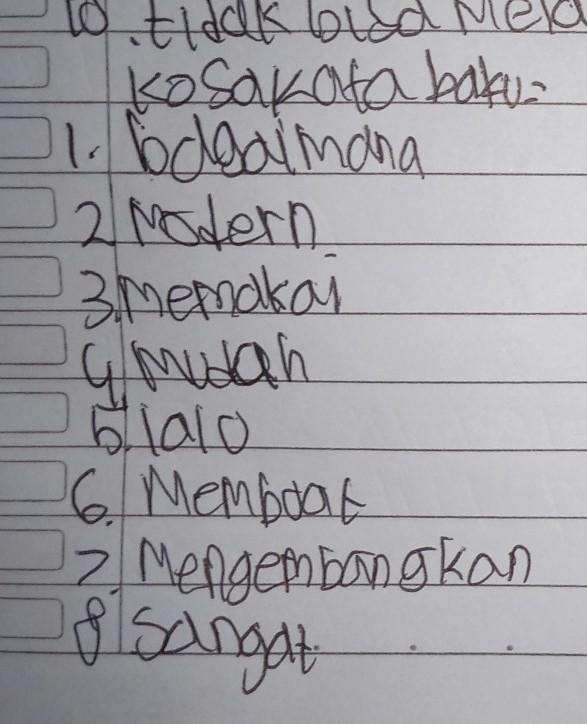 10. tidak bisa
kosakata baku:
1. bagaimana
2. Modern
3. Memakai
4. Mudah
5. lalo
6. Memboat
7. Mengembangkan
8. Sangat